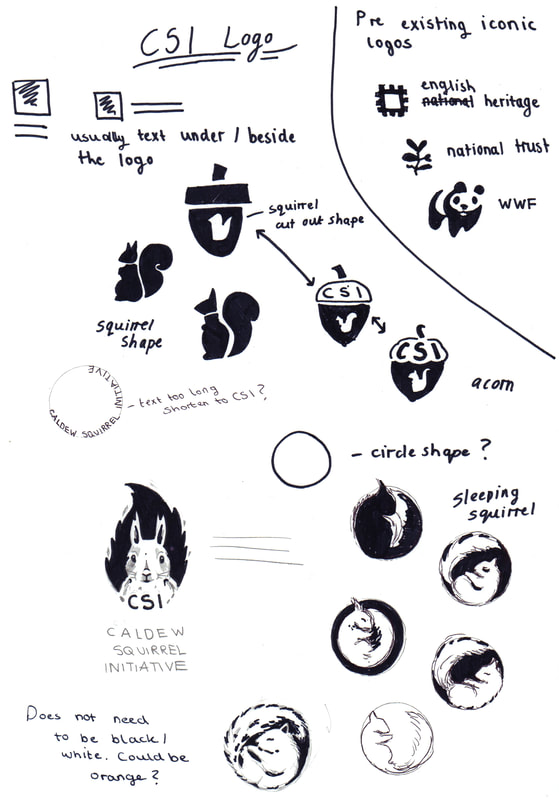 CSI Logo
Pre existing iconic
logos
english
national heritage
national trust
WWF
usually text under / beside
the logo
squirrel
cut out shape
CSI
CSI
squirrel
shape
acorn
CALDEW SQUIRREL INITIATIVE
- text too long
shorten to CSI?
- circle shape ?
sleeping
squirrel
CSI
CALDEW
SQUIRREL
INITIATIVE
Does not need
to be black /
white. Could be
orange ?